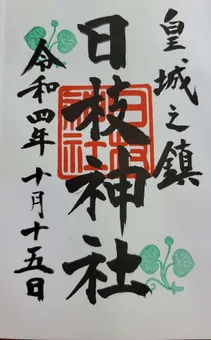 皇城之鎮
日枝神社
令和四年十月十五日